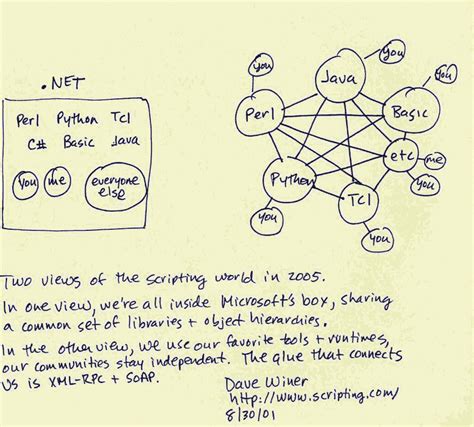 .NET
Perl Python Tcl
C# Basic Java
You me everyone
else
You
You
You
Java
Perl
Basic
etc
me
You
Python
Tcl
You
You
Two views of the scripting world in 2005.
In one view, we're all inside Microsoft's box, sharing
a common set of libraries + object hierarchies.
In the other view, we use our favorite tools + runtimes,
our communities stay independent. The glue that connects
us is XML-RPC + SOAP.
Dave Winer
http://www.scripting.com/
8/30/01